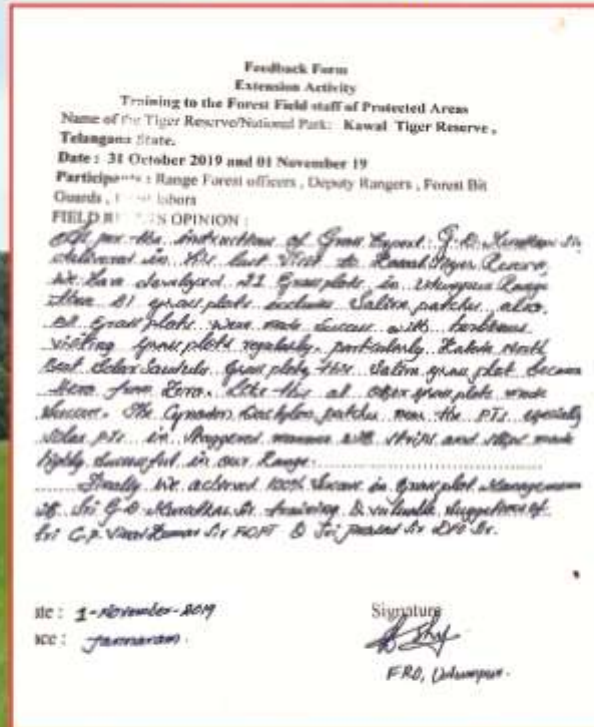 Feedback Form
Extension Activity
Training to the Forest Field staff of Protected Areas
Name of the Tiger Reserve/National Park: Kawal Tiger Reserve,
Telangana State.
Date : 31 October 2019 and 01 November 19
Participants : Range Forest officers , Deputy Rangers , Forest Bit
Guards , labors
FIELD OPINION :
As per the instructions of Grass Expert G.D. Sir
delivered in his last visit to Kawal Tiger Reserve,
we have developed 21 Grass plots in Udumpur Range
21 grass plots includes Saline patches also.
Grass plots were made success with
visiting grass plots regularly, particularly North
Beat Solar grass plot, this Saline grass plot became
Hero from Zero. Like this all other grass plots made
success. The Cynodon Dactylon patches near the PTs especially
solar PTs in staggered manner with strips and made
highly successful in our Range.
Finally we achieved 100% success in Grass plot Management
of Sri G.D. Sir training & valuable suggestions of
Sri C.P. Vinod Kumar Sir FDPT & Sri Sir DFO Sir.
te : 1-November-2019
ce : Jannaram.
Signature
FRO, Udumpur.